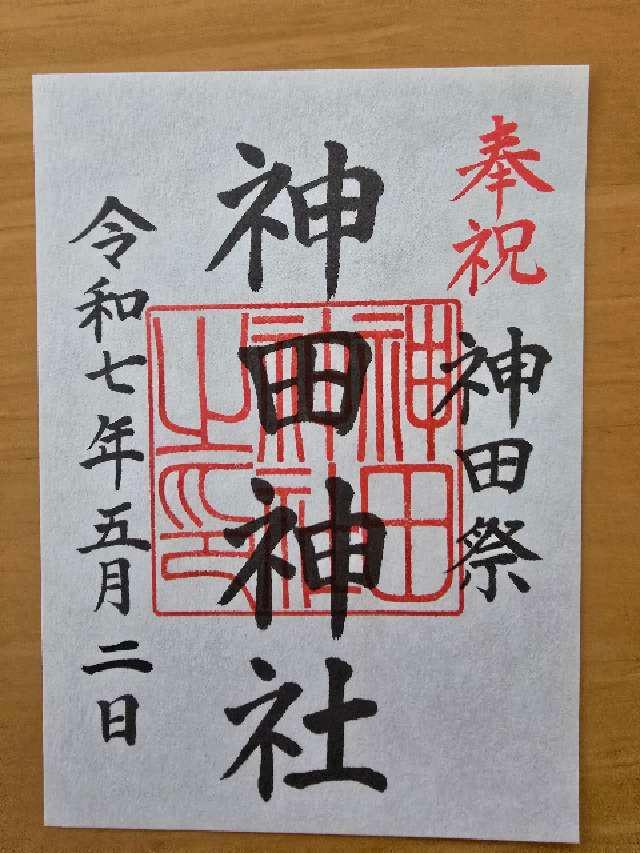 奉祝
神田祭
神田神社
神田
神社
之印
令和七年五月二日